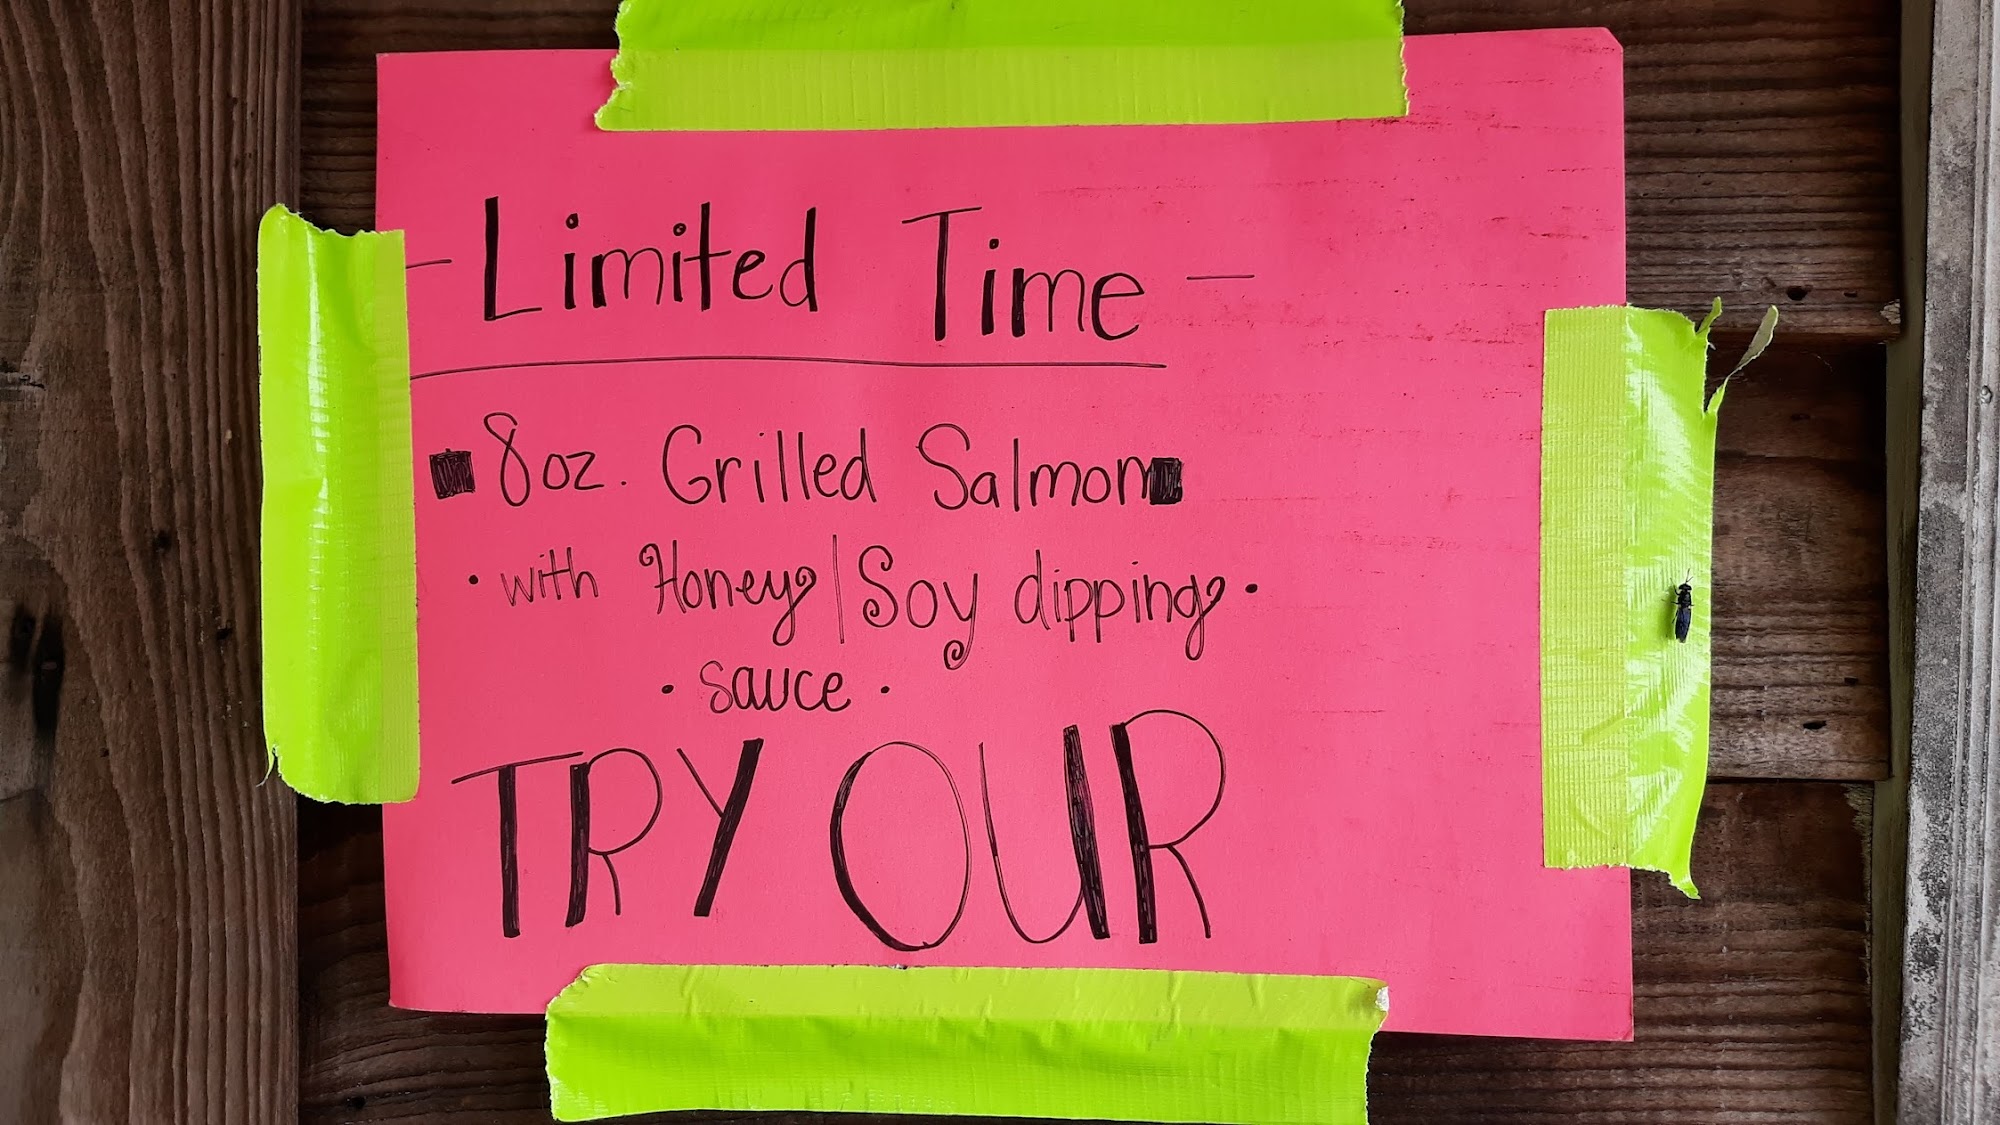 - Limited Time -
8 oz. Grilled Salmon
• with Honey/Soy dipping •
• sauce •
TRY OUR